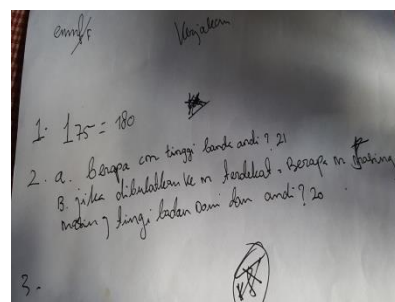 Kerjakan
1. 175 = 180
2. a. berapa cm tinggi banda andi? 21
B. jika dibulatkan ke m terdekat. Berapa m
masing tingi badan Doni dan andi? 20
3.